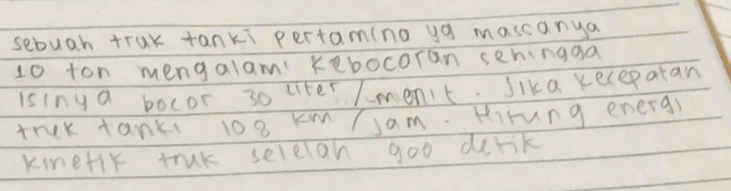 sebuah truk tanki pertamina yg massanya
10 ton mengalami kebocoran sehingga
isinya bocor 30 liter / menit. Jika kecepatan
truk tanki 108 km / jam. Hitung energi
kinetik truk setelah 900 detik